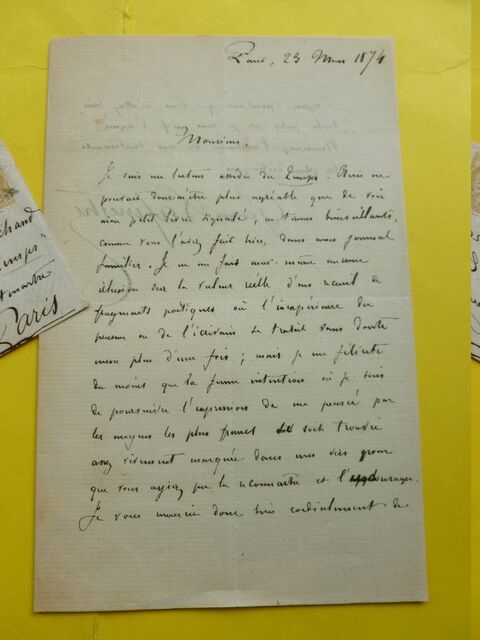 Paris, 23 Mars 1874
Monsieur,
Je suis un lecteur assidu du Temps. Rien ne
pouvait donc m'être plus agréable que de voir
mon petit livre signalé, en termes bienveillants,
comme vous l'avez fait hier, dans mon journal
familier. Je ne me fais moi-même aucune
illusion sur la valeur réelle d'un recueil de
fragments poétiques où l'inexpérience du
penseur ou de l'écrivain se trahit sans doute
plus d'une fois ; mais je me félicite
du moins que la ferme intention où je suis
de poursuivre l'expression de ma pensée par
les moyens les plus francs soit trouvée
assez vivement marquée dans mes vers pour
que vous ayiez pu la reconnaître et l'encourager.
Je vous remercie donc bien cordialement de
chand
Temps"
martre
Paris